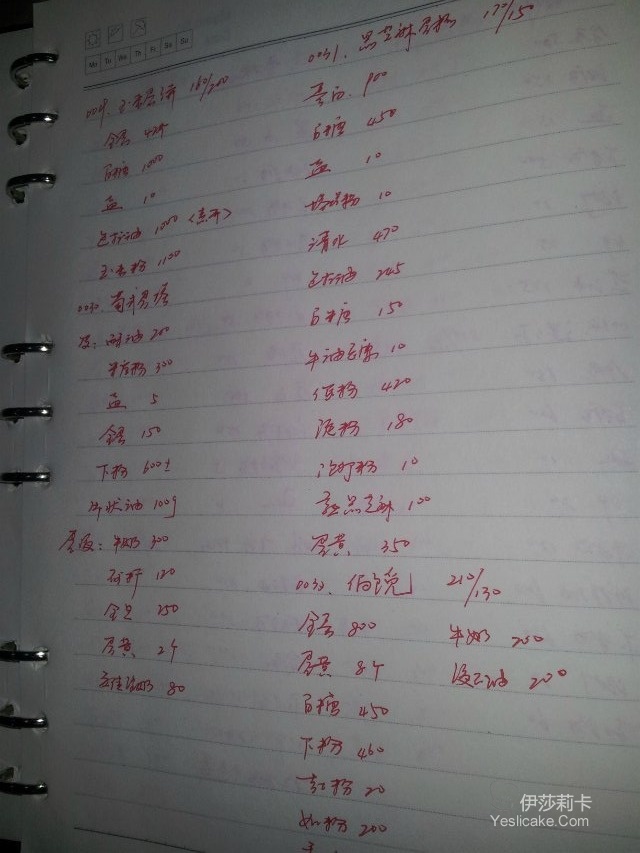 Mo Tu We Th Fr Sa Su
0029. 玉米蛋饼 180/200
全蛋 4个
白糖 1000
盐 10
色拉油 1000
玉米粉 1100
0030. 葡式蛋塔
皮: 酥油 200
糖粉 300
盐 5
全蛋 150
下粉 600±
片状油 100g
蛋液: 牛奶 300
砂糖 120
全蛋 250
蛋黄 2个
80
0031. 黑芝麻蛋糕 170/150
蛋白 900
白糖 450
盐 10
塔塔粉 10
清水 470
色拉油 245
白糖 150
牛油香 10
低粉 420
淀粉 180
泡打粉 10
黑芝麻 100
蛋黄 350
210/130
全蛋 800
蛋黄 8个
白糖 450
下粉 460
粉 20
奶粉 200
牛奶 200
液态油 200
伊莎莉卡
Yeslicake.Com